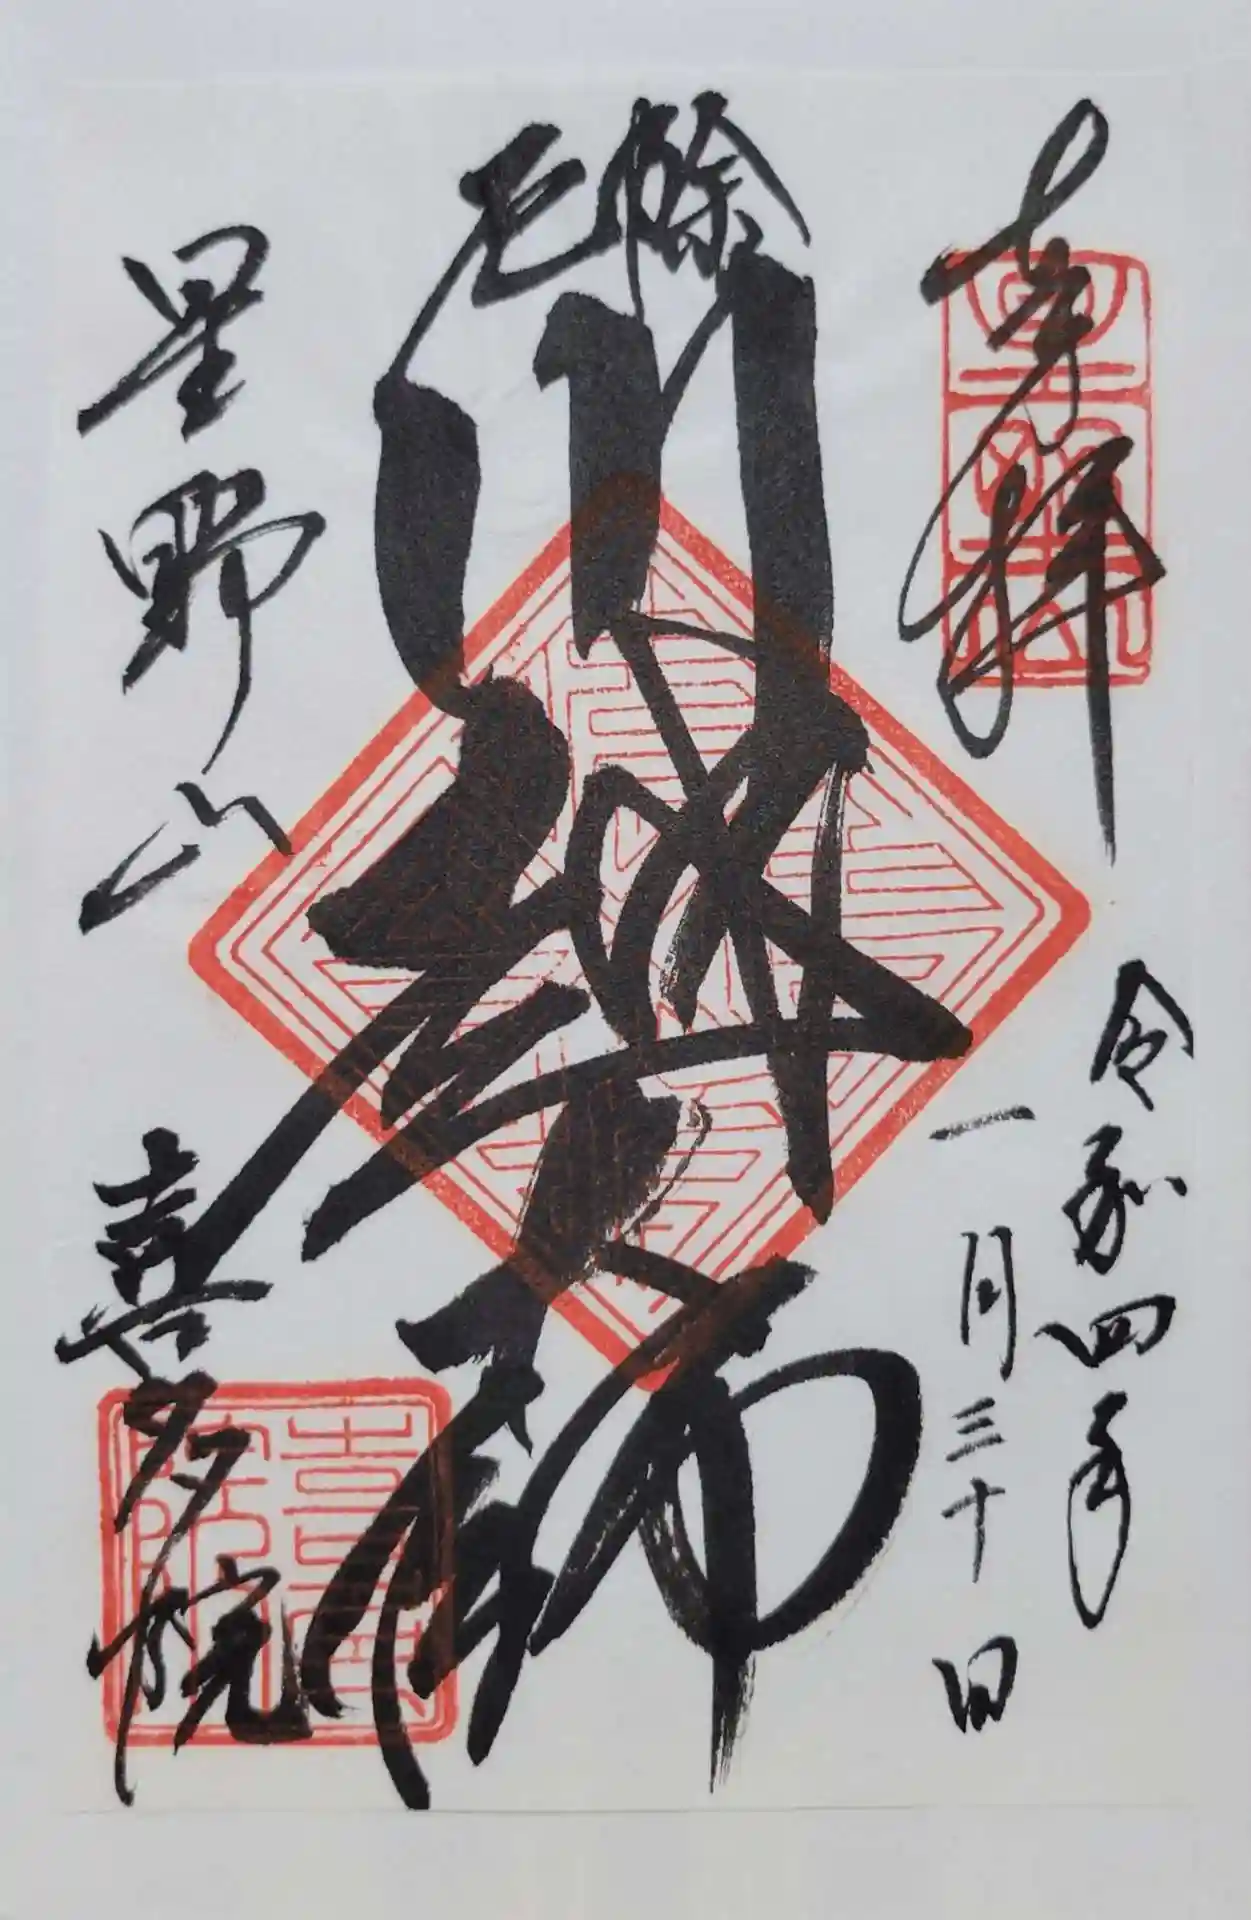 奉拝
令和四年
一月三十日
厄除
川越大師
星野山
喜多院